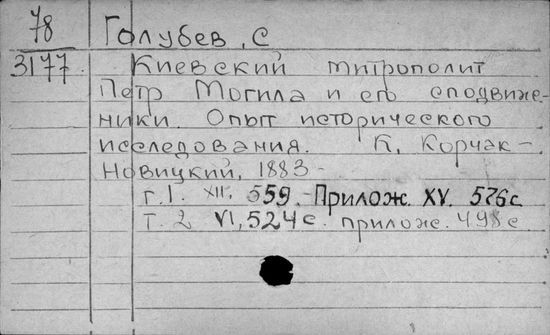 78 Голубев, С
3177 Киевский митрополит
Петр Могила и его сподвиже-
ники. Опыт исторического
исследования. К, Корчак-
Новицкий, 1883-
т.1. XII, 559. Прилож. XV. 576 с.
Т. 2 VI, 524 с. прилож. 498 с